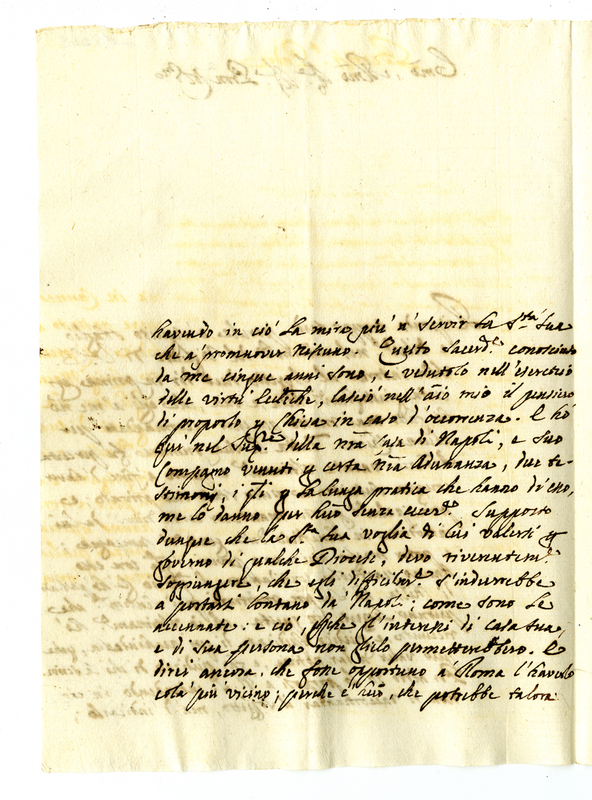 havendo in ciò la mira più a' servir la S.ttà Sua
che a promuover nissuno. Questo Sacerd.e conosciuto
da me cinque anni sono, e vedutolo nell'esercitio
delle virtù Eccl.che, lasciò nell'aīo mio il pensiero
di proporlo p Chiesa in caso d'occorrenza. E hò
quì nel Sup.re della nrā Casa di Napoli, e suo
Compagno venuti p certa nrā Adunanza, due te-
stimonij, i qli p la lunga pratica che hanno di esso,
me lo danno per huō senza ecced.e Supposto
dunque che la S.tà Sua voglia di lui valersi p
governo di qualche Diocesi, devo riverentem.e
soggiungere, che egli difficilm.e s'indurrebbe
a portarsi lontano da Napoli; come sono le
accennate: e ciò, pche l'interessi di casa sua,
e di sua persona non glielo permetterebbero. E
direi ancora, che fosse opportuno a' Roma l'haverlo
colà più vicino; perche è huō, che potrebbe talora